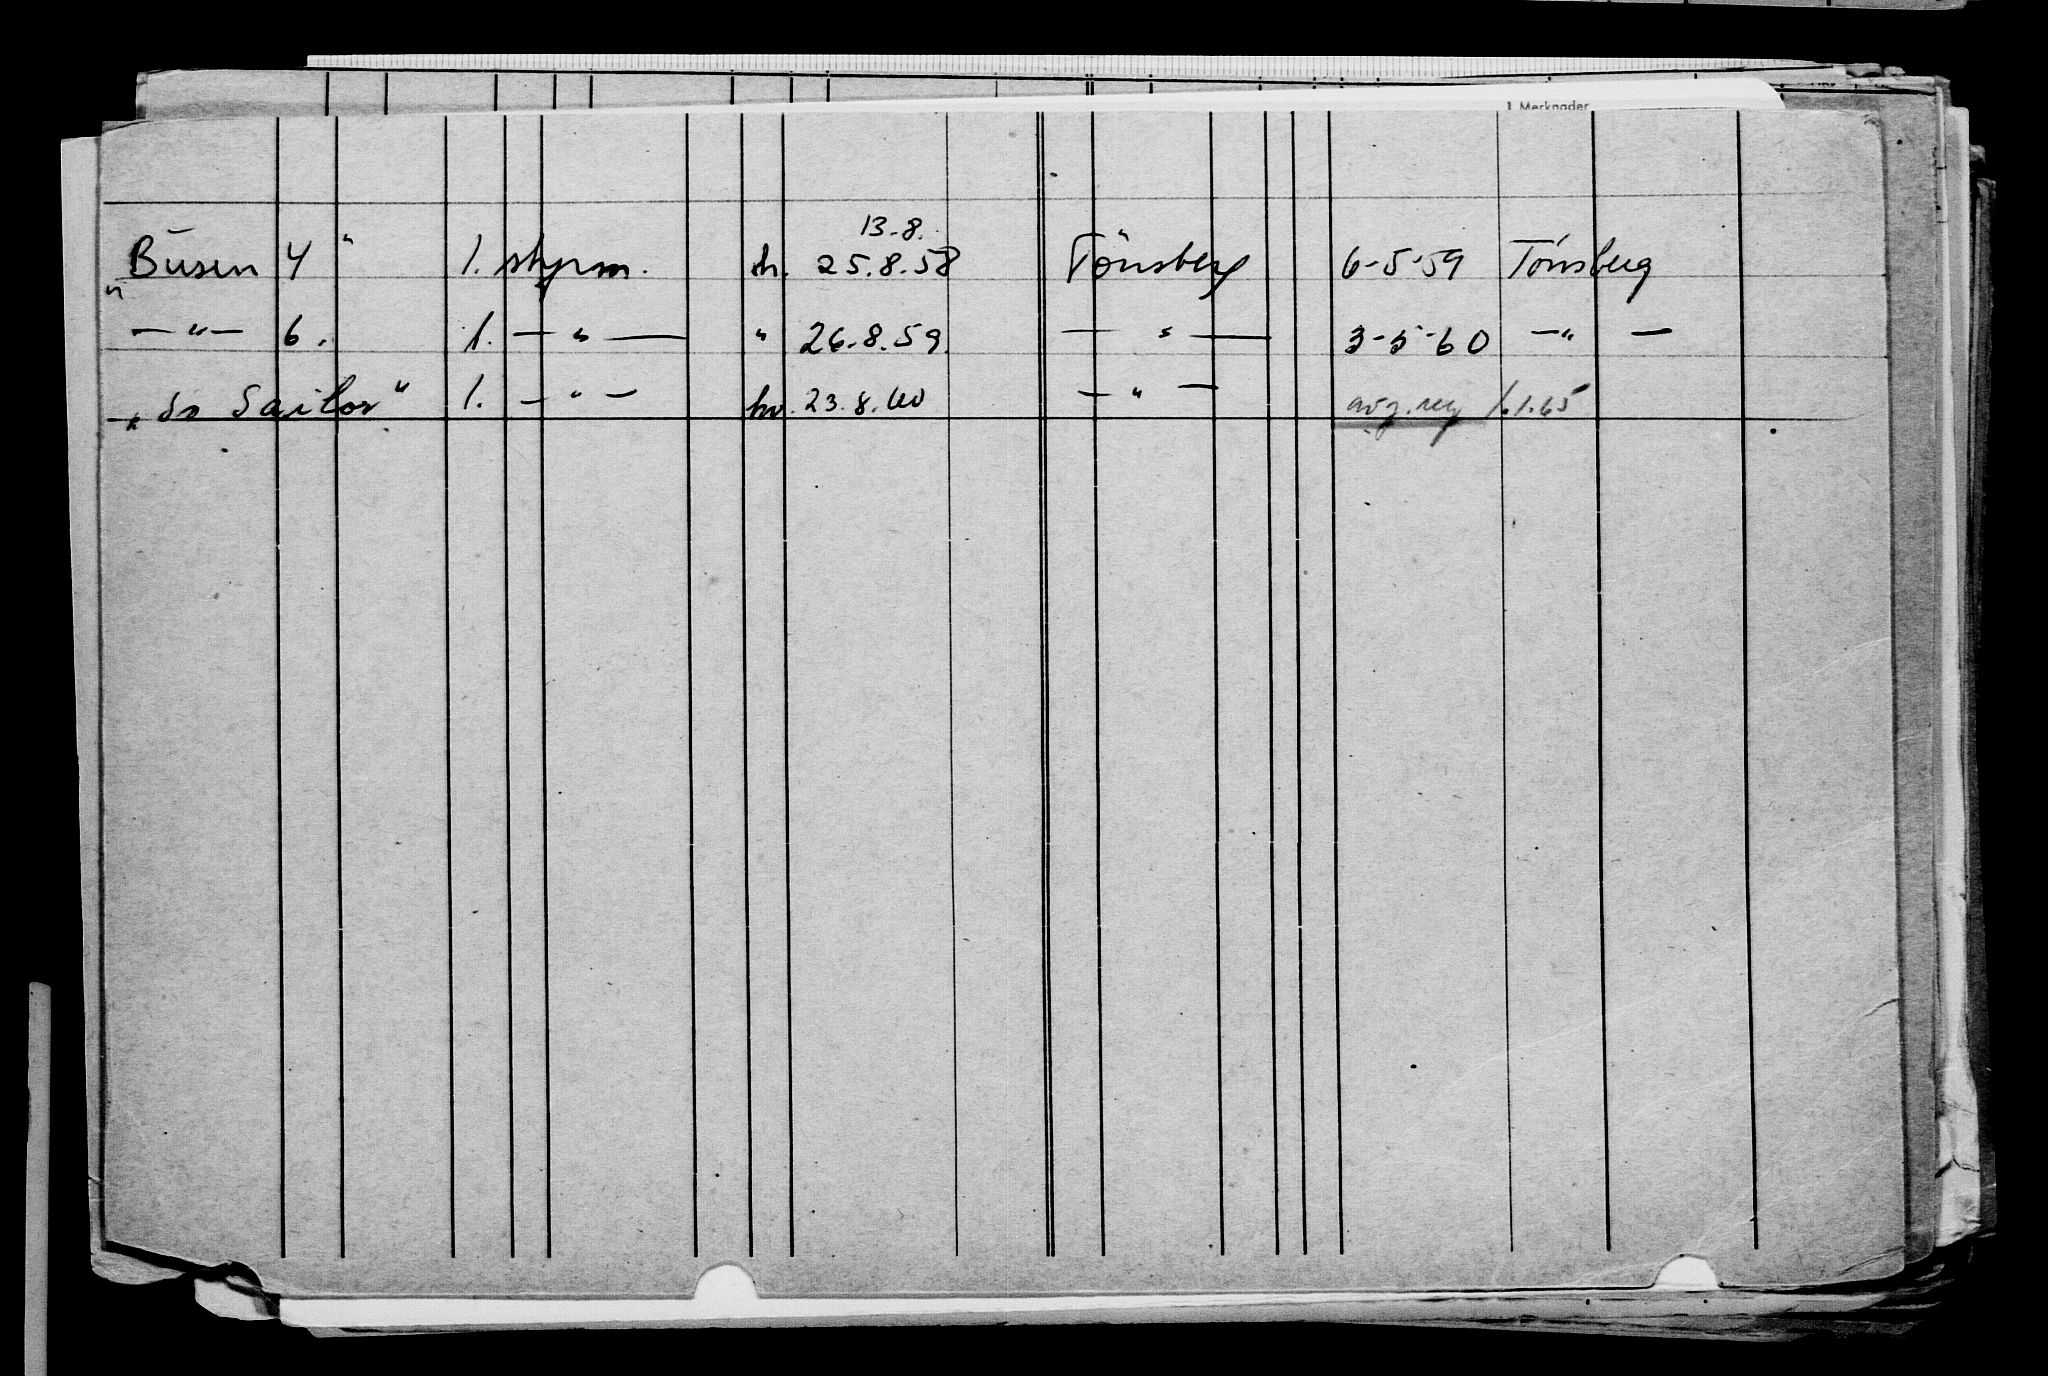 1 Merknader
13-8.
"Busen 4" 1. styrm. h. 25.8.58 Tönsberg 6-5-59 Tönsberg
— " — 6. 1. — " — " 26.8.59. — " — 3-5-60 — " —
"Ss Sailor" 1. — " — hv. 23.8.60 — " — avg. reg 1.1.65